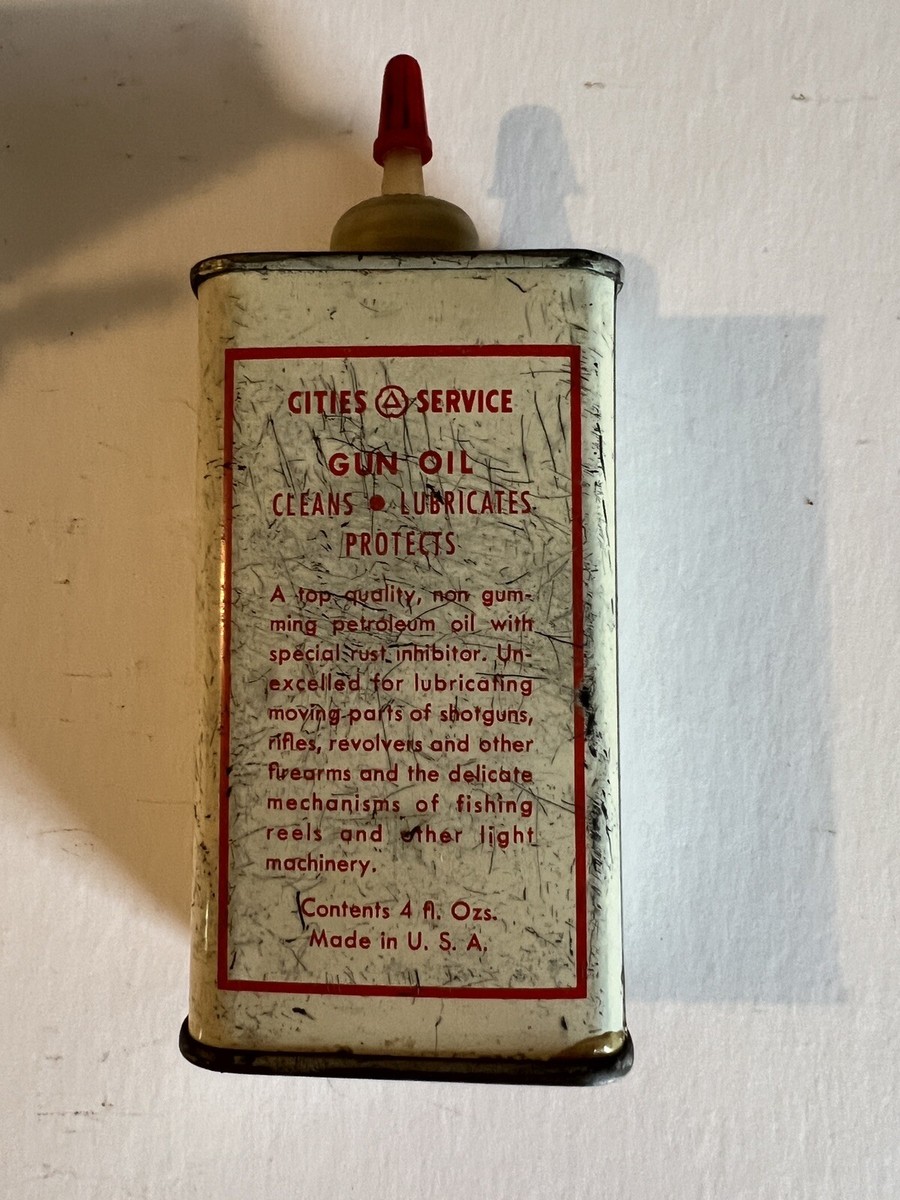 CITIES SERVICE
GUN OIL
CLEANS • LUBRICATES
PROTECTS
A top quality, non gum-
ming petroleum oil with
special rust inhibitor. Un-
excelled for lubricating
moving parts of shotguns,
rifles, revolvers and other
firearms and the delicate
mechanisms of fishing
reels and other light
machinery.
Contents 4 fl. Ozs.
Made in U. S. A.